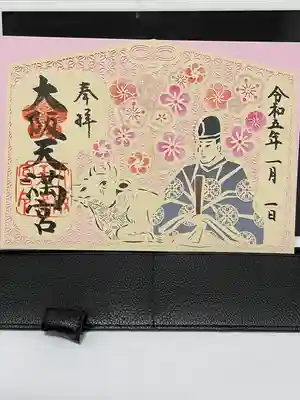 令和五年一月一日
奉拝
大阪天満宮